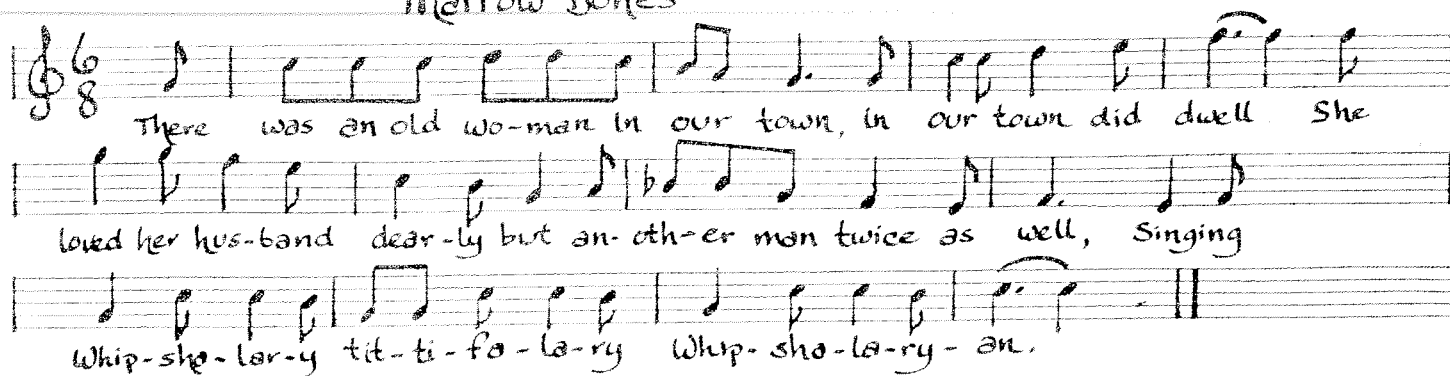 Marrow Bones
6
8
There was an old wo-man in our town, in our town did dwell. She
loved her hus-band dear-ly but an-oth-er man twice as well, Singing
Whip-sho-lar-y tit-ti-fo-la-ry Whip-sho-la-ry-an.